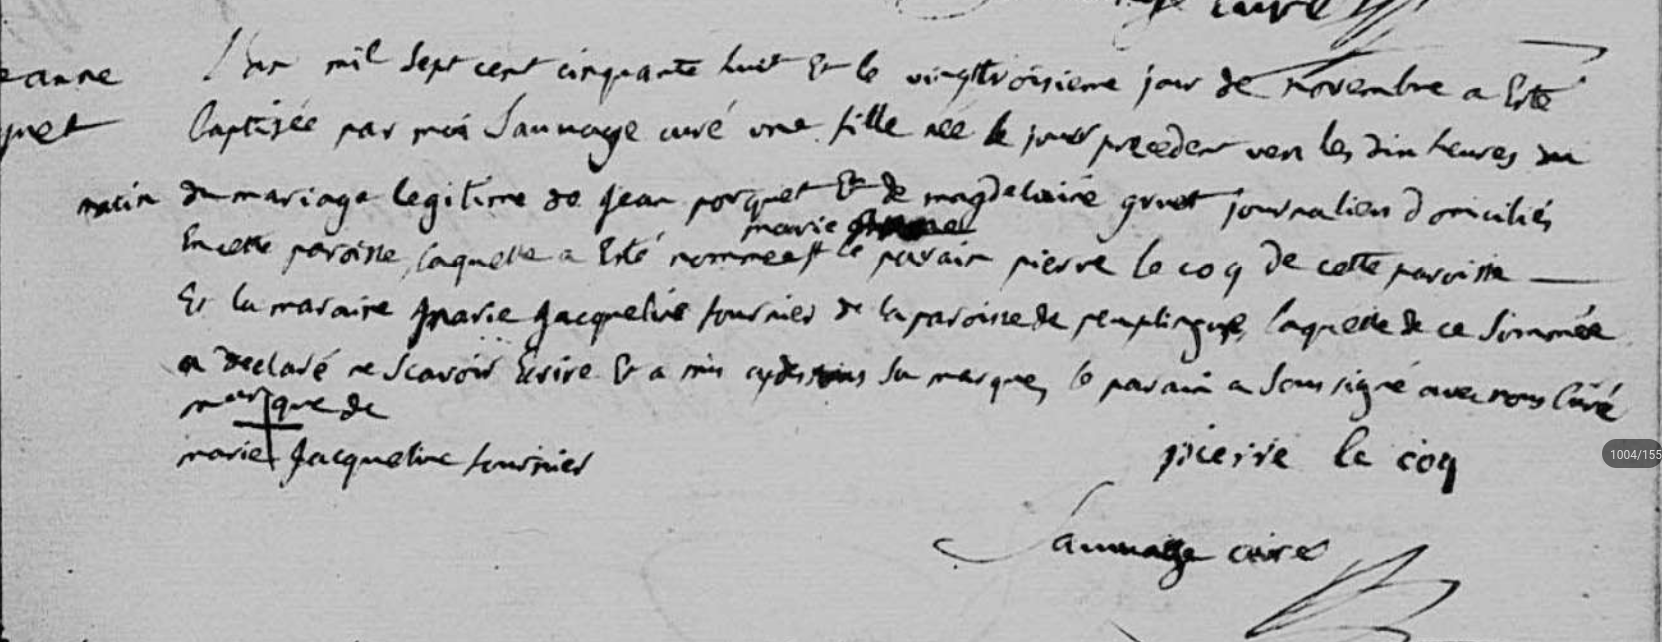 curé
L'an mil Sept cent cinquante huit Et le vingttroisieme jour de novembre a Esté
eanne
baptisée par moi Sauvage curé une fille née le jour precedent vers les dix heures du
quet
matin du mariage legitime de Jean porquet Et de magdelaine gruet journaliers domiciliés
marie
En cette paroisse, laquelle a Esté nommée le parain pierre le coq de cette paroisse
Et la maraine marie Jacqueline fournier de la paroisse de peuplingue, laquelle de ce Sommée
a declaré ne Scavoir Ecrire Et a mis cydessous Sa marque, le parain a Soussigné avec nous Curé
marque de
marie Jacqueline fournier
pierre le coq
Sauvage curé
1004/155